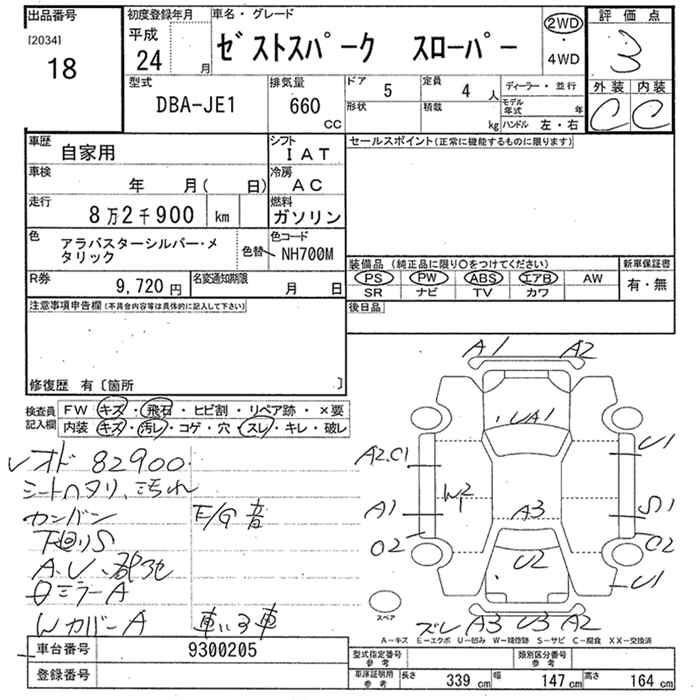 出品番号
[2034]
18
初度登録年月
平成
24 月
車名・グレード
ゼストスパーク スローパー
2WD
4WD
評価点
3
外装 内装
C C
型式
DBA-JE1
排気量
660
CC
ドア
5
定員
4 人
ディーラー・並行
形状
積載
kg
モデル年式 年
ハンドル 左・右
車歴
自家用
シフト
IAT
セールスポイント(正常に機能するものに限ります)
車検
年 月( 日)
冷房
AC
走行
8万2千900 km
燃料
ガソリン
色
アラバスターシルバー・メ
タリック
色替
色コード
NH700M
装備品 (純正品に限り○をつけてください)
新車保証書
PS PW ABS エアB AW
SR ナビ TV カワ
有・無
R券
9,720 円
名変通知期限
月 日
後日品
注意事項申告欄(不具合内容等は具体的に記入して下さい)
修復歴 有〔箇所 〕
検査員
記入欄
FW キズ・飛石・ヒビ割・リペア跡・×要
内装 キズ・汚レ・コゲ・穴・スレ・キレ・破レ
オド 82900
シートヘタリ、汚れ
カンバン
E/G 音
下廻りS
A、U、
ミラーA
WカバーA
A1 A2
UA1
A2.C1
U1
W2
A1
A3
S1
O2
C2
U2
U1
スペア
ズレ A3 U3 A2
A－キズ E－エクボ U－凹み W－補修跡 S－サビ C－腐食 XX－交換済
車台番号
9300205
登録番号
型式指定番号
参考
類別区分番号
参考
車庫証明用
参考
長さ 339 cm 幅 147 cm 高さ 164 cm